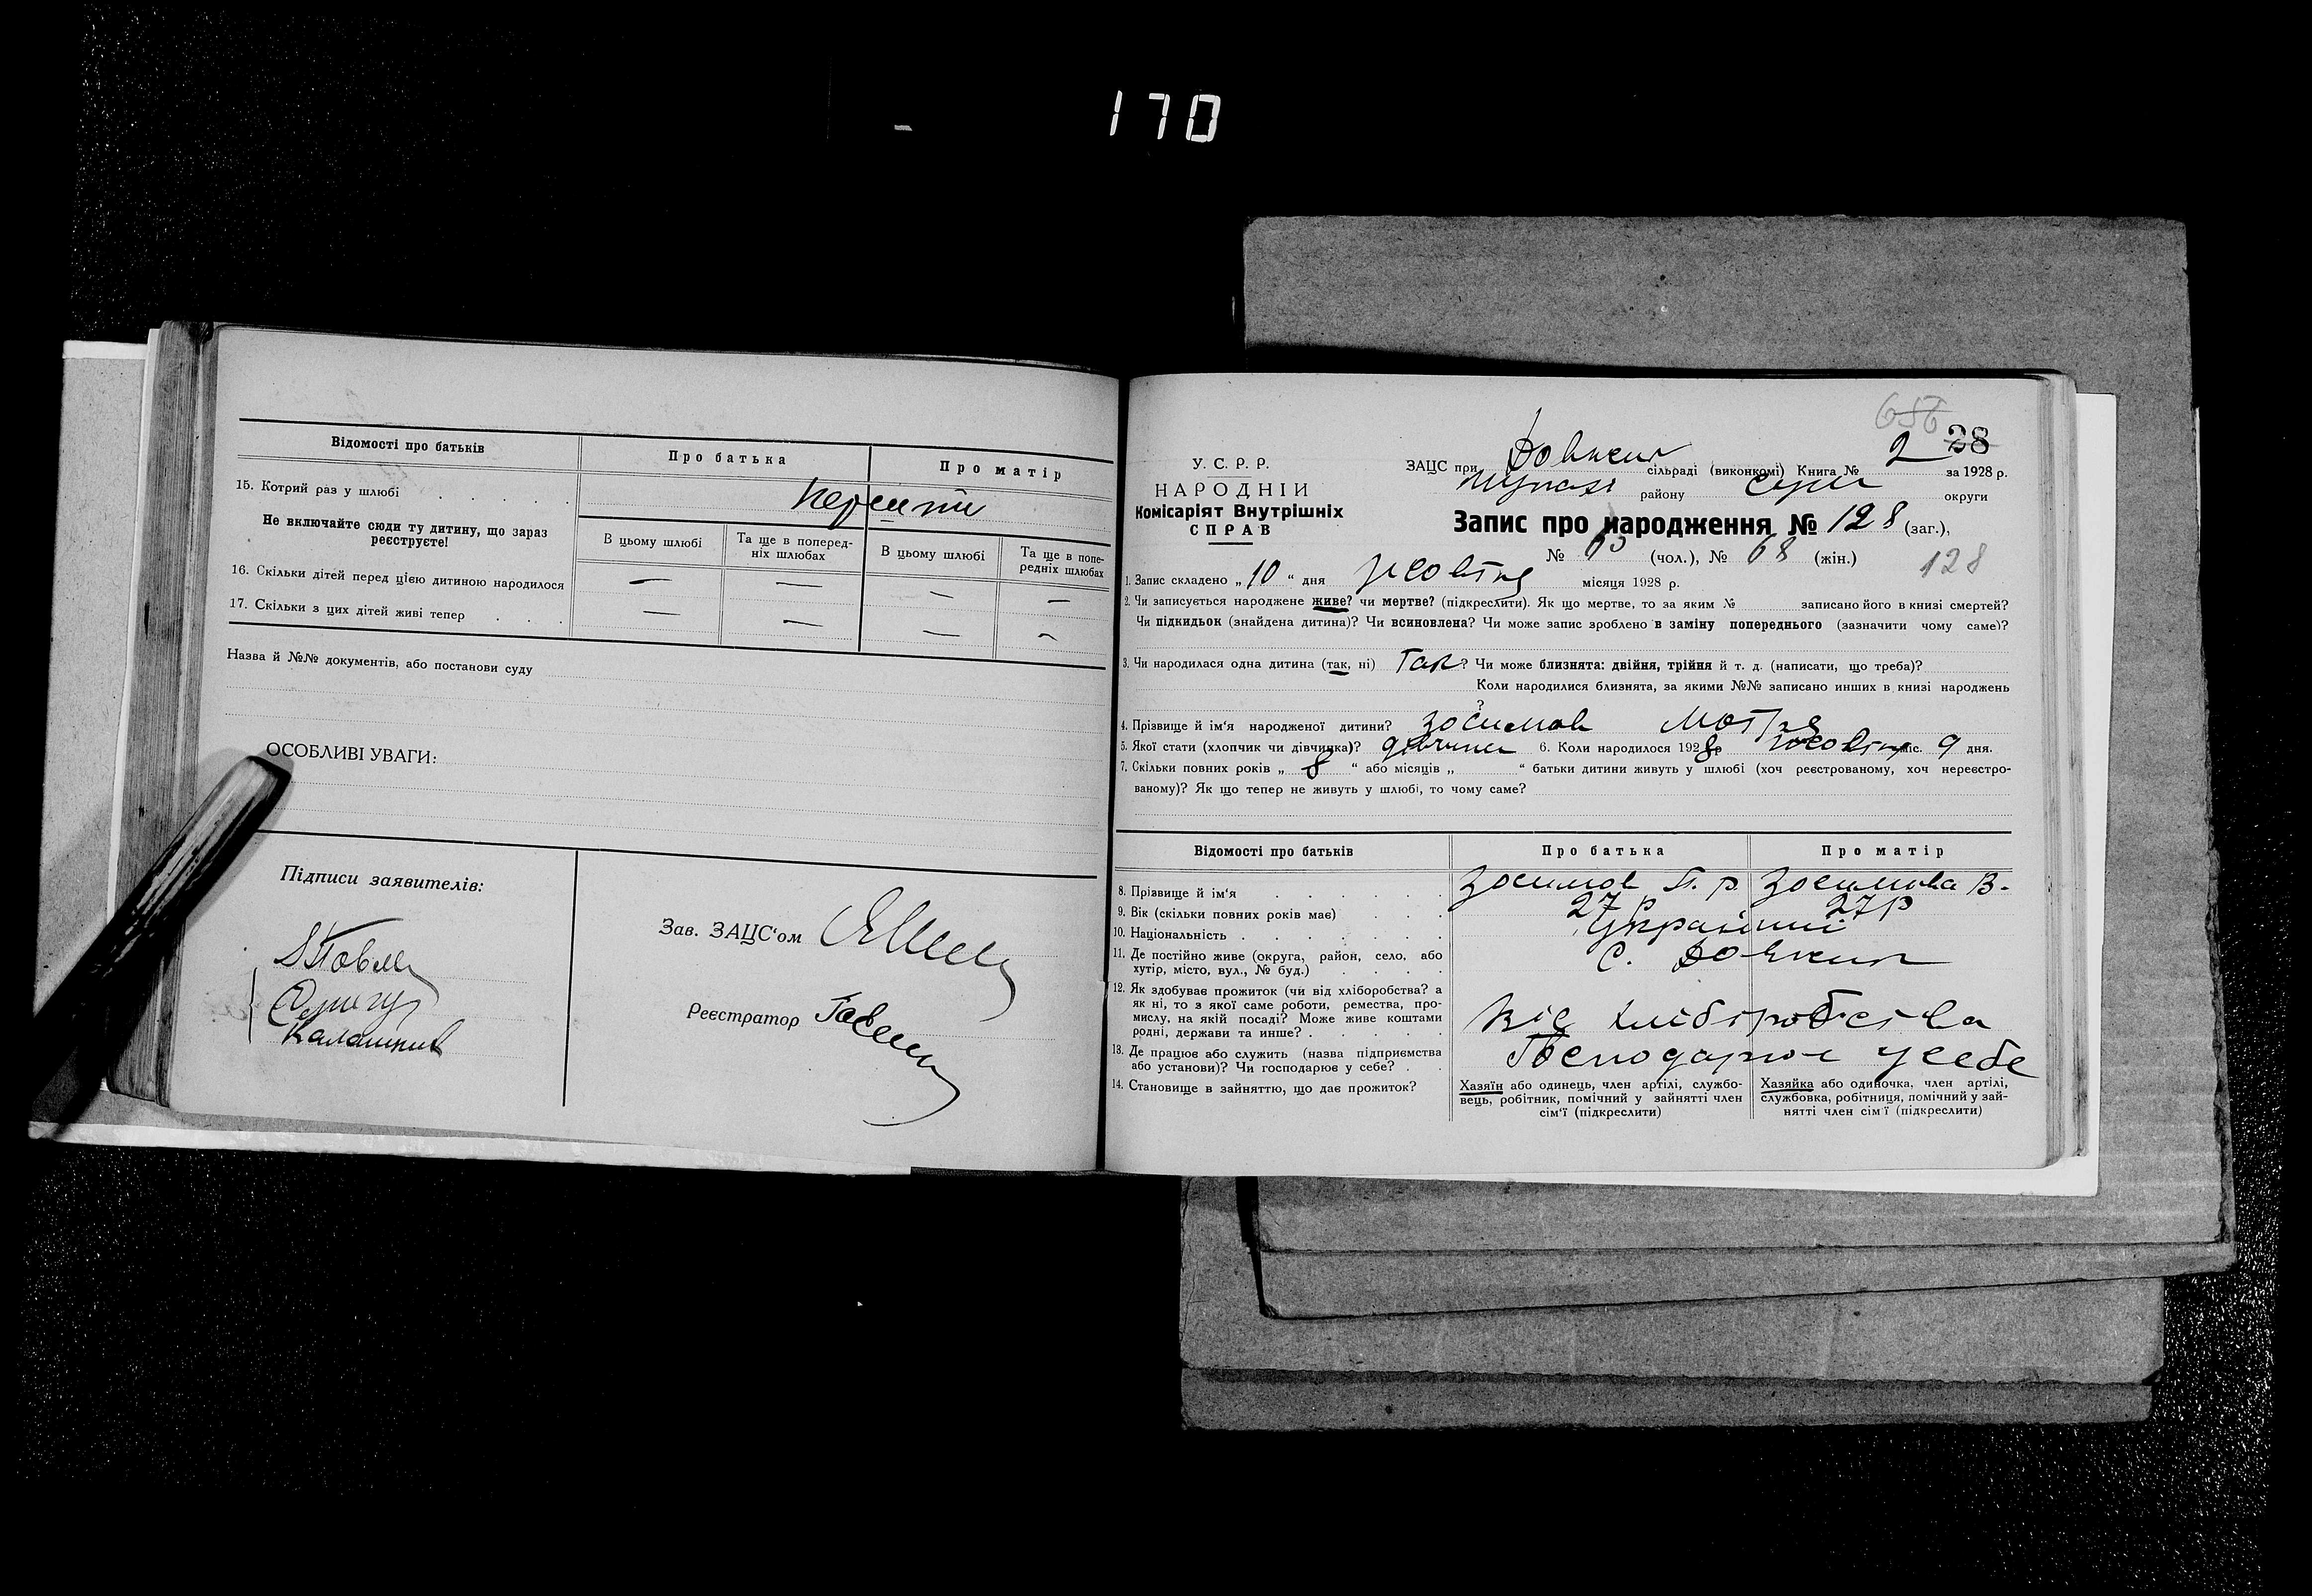 170
Відомості про батьків
Про батька
Про матір
15. Котрий раз у шлюбі
Не включайте сюди ту дитину, що зараз
реєструєте!
В цьому шлюбі
Та ще в поперед-
ніх шлюбах
В цьому шлюбі
Та ще в попе-
редніх шлюбах
16. Скільки дітей перед цією дитиною народилося — — — —
17. Скільки з цих дітей живі тепер — — — —
Назва й №№ документів, або постанови суду
ОСОБЛИВІ УВАГИ:
Підписи заявителів:
Зав. ЗАЦС'ом
Реєстратор
656
28
У. С. Р. Р.
НАРОДНІЙ
Комісаріят Внутрішніх
СПРАВ
ЗАЦС при сільраді (виконкомі) Книга № 2 за 1928 р.
району округи
Запис про народження № 128 (заг.),
№ (чол.), № 68 (жін.)
128
1. Запис складено „10“ дня жовтня місяця 1928 р.
2. Чи записується народжене живе? чи мертве? (підкреслити). Як що мертве, то за яким № записано його в книзі смертей?
Чи підкидьок (знайдена дитина)? Чи всиновлена? Чи може запис зроблено в заміну попереднього (зазначити чому саме)?
3. Чи народилася одна дитина (так, ні) Так? Чи може близнята: двійня, трійня й т. д. (написати, що треба)?
Коли народилися близнята, за якими №№ записано инших в книзі народжень
?
4. Прізвище й ім'я народженої дитини? Зосимов Мотря
5. Якої стати (хлопчик чи дівчинка)? дівчина 6. Коли народилося 1928 р. жовтня міс. 9 дня.
7. Скільки повних років „ 8 “ або місяців „ “ батьки дитини живуть у шлюбі (хоч реєстрованому, хоч нереєстро-
ваному)? Як що тепер не живуть у шлюбі, то чому саме?
Відомості про батьків
Про батька
Про матір
8. Прізвище й ім'я Зосимов П. р. Зосимова В.
9. Вік (скільки повних років має) 27 р 27 р
10. Національність Українці
11. Де постійно живе (округа, район, село, або
хутір, місто, вул., № буд.) с.
12. Як здобуває прожиток (чи від хліборобства? а
як ні, то з якої саме роботи, ремества, про-
мислу, на якій посаді? Може живе коштами
родні, держави та инше?
Від хліборобства
13. Де працює або служить (назва підприємства
або установи)? Чи господарює у себе?
Господарює у себе
14. Становище в зайняттю, що дає прожиток?
Хазяїн або одинець, член артілі, службо-
вець, робітник, помічний у зайнятті член
сім'ї (підкреслити)
Хазяйка або одиночка, член артілі,
службовка, робітниця, помічний у зай-
нятті член сім'ї (підкреслити)